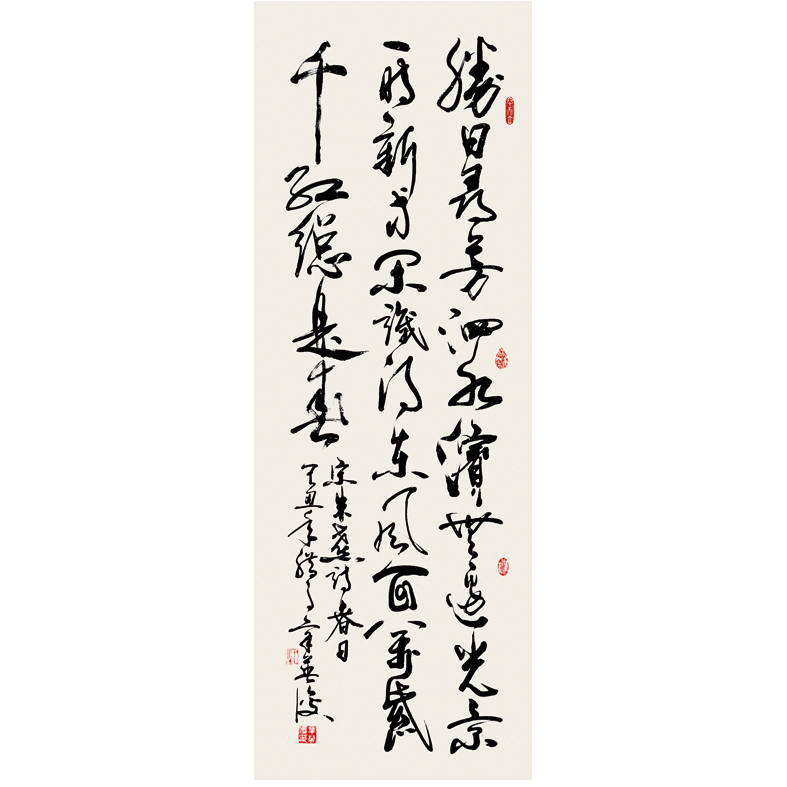 勝日尋芳泗水濱無邊光景
一時新等閑識得東風面萬紫
千紅總是春
宋朱熹詩春日
丑年